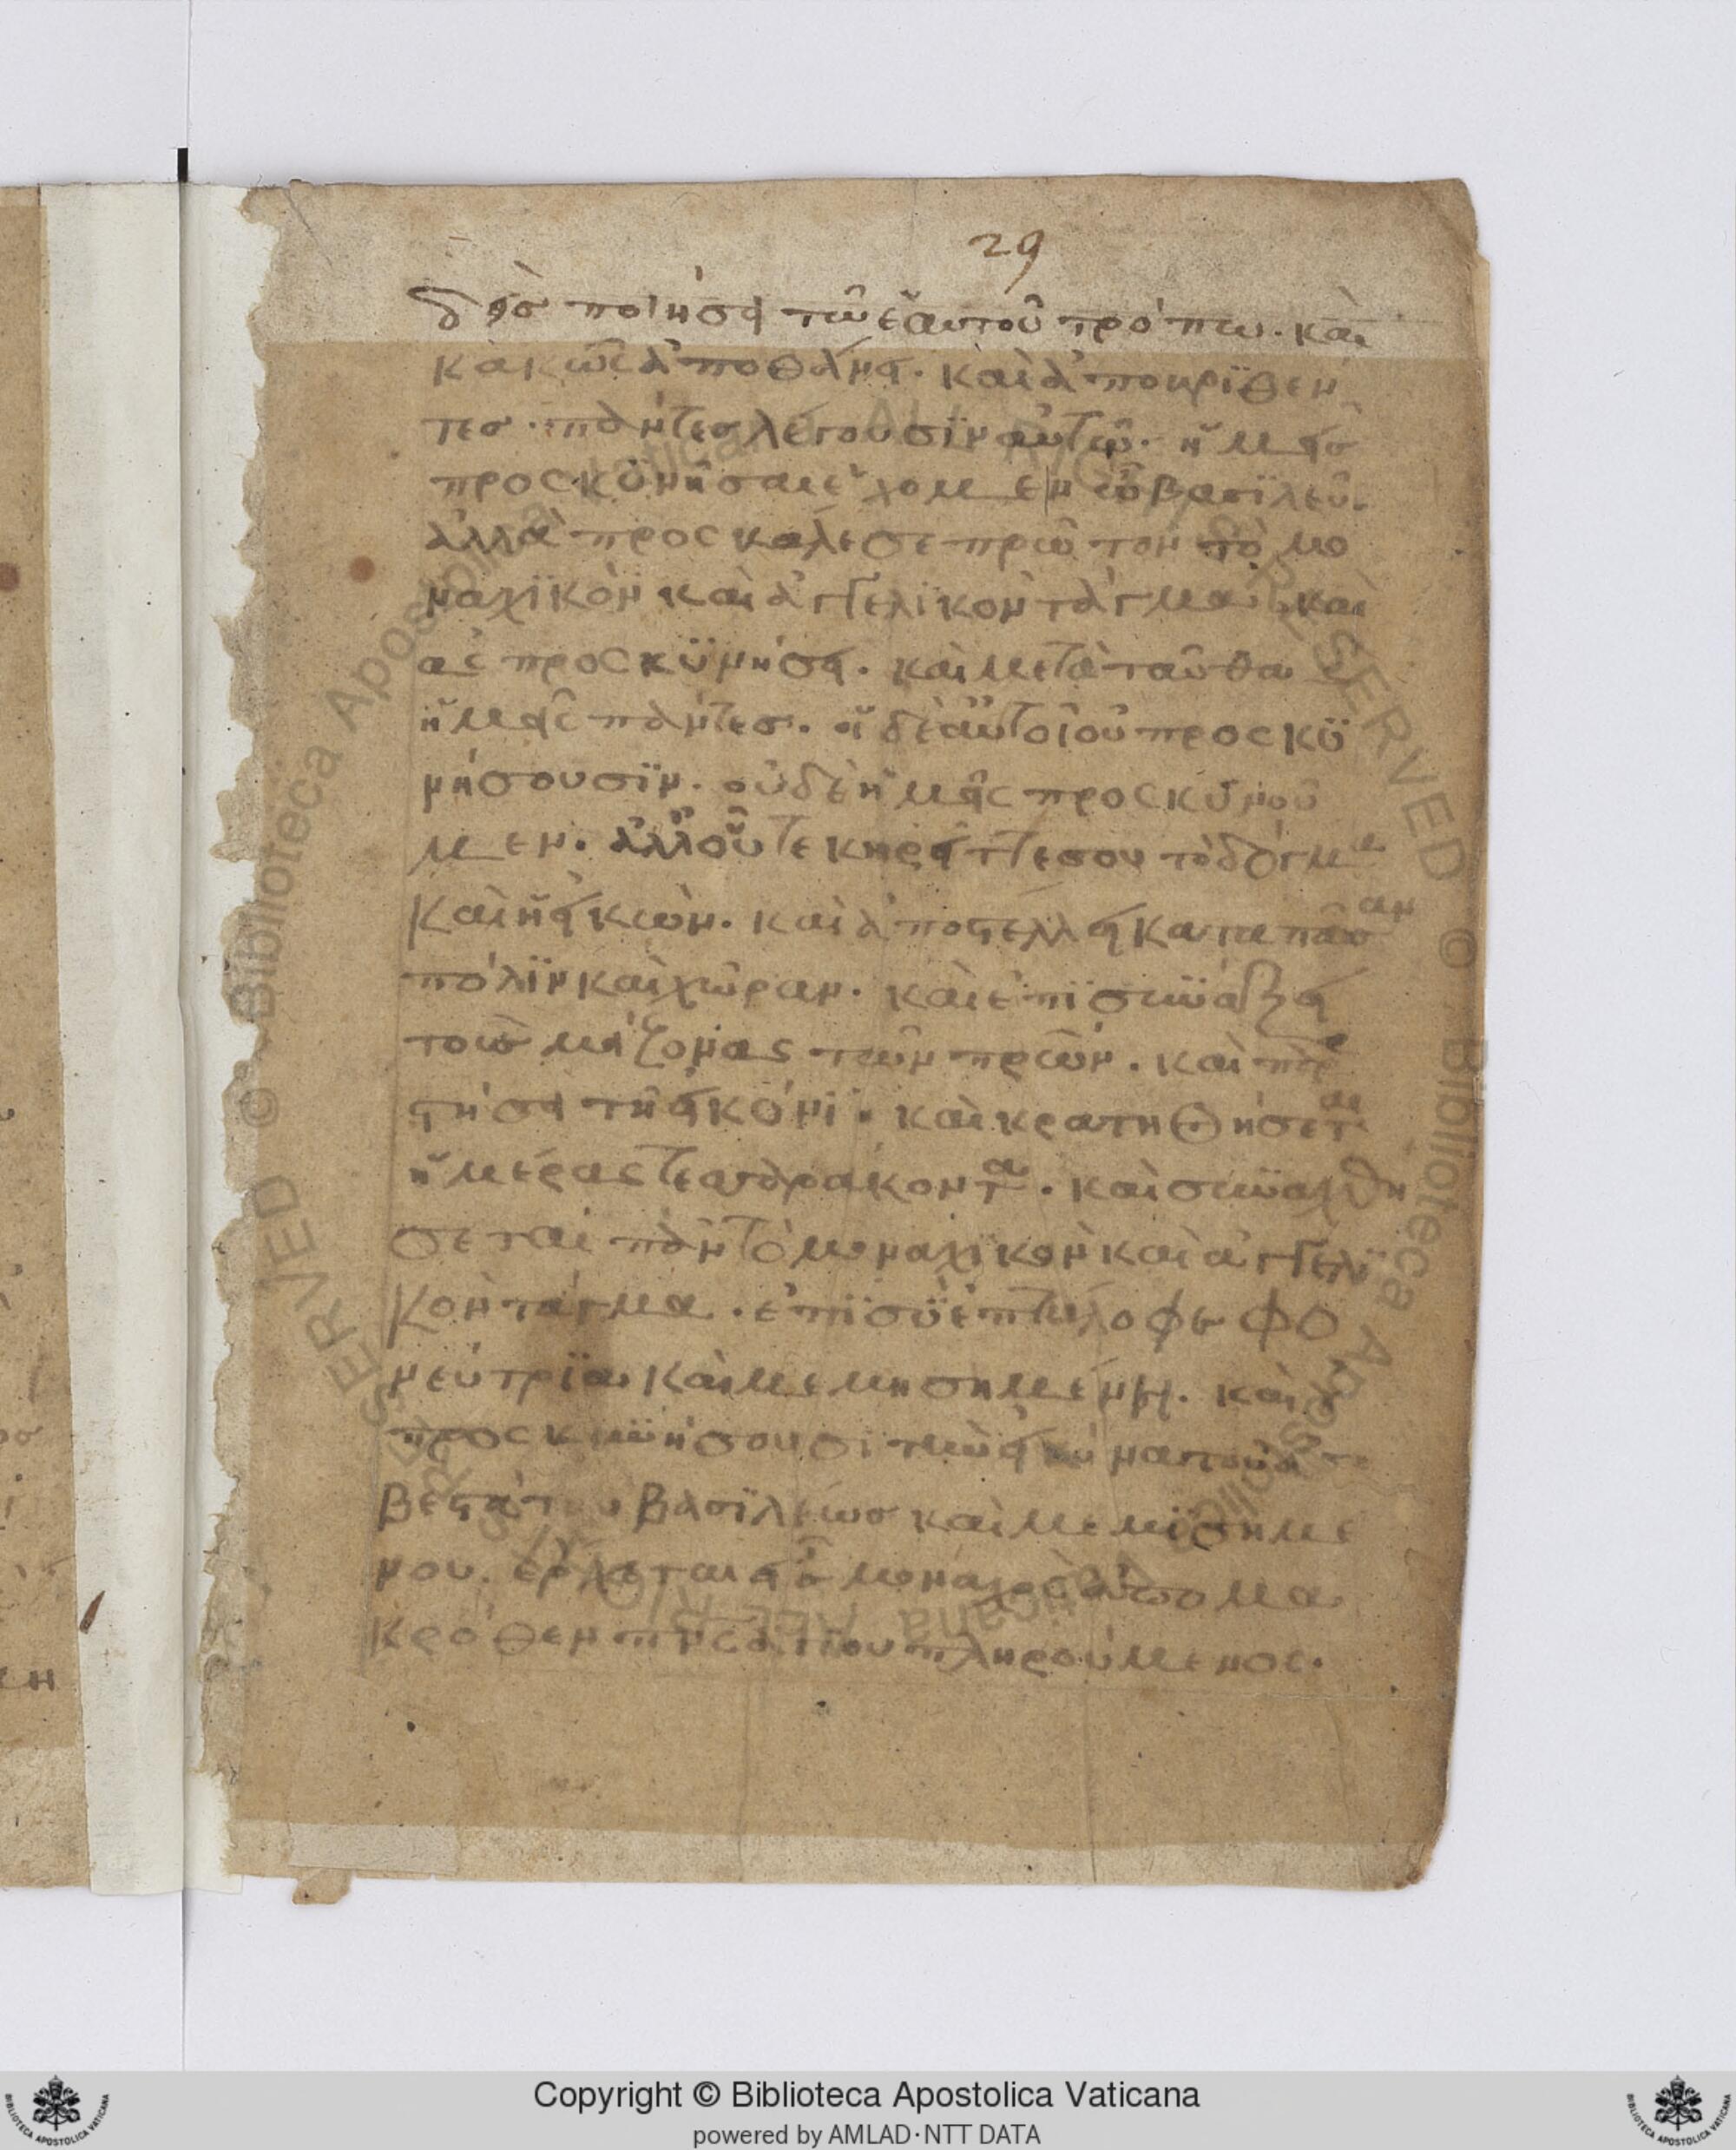 29
δεὶς ποιήσει τῶ ἑαυτοῦ τρόπω. καὶ
κακῶς ἀποθάνει. καὶ ἀποκρϊθεν
τες. πάντες λέγουσϊν αὐτῶ. ἡμεῖς
προσκϋνῆσαι ἔχομεν ὦ βασϊλεῦ.
ἀλλὰ προσκάλεσε πρῶτον τὸ μο
ναχϊκὸν καὶ ἀγγελϊκὸν τάγμα καὶ
ἂς προσκϋνήσει. καὶ μετὰ ταῦθα
ἡμεῖς πάντες. εἰ δὲ αὐτοὶ οὐ προσκϋ
νήσουσϊν. οὐδὲ ἡμεῖς προσκυνοῦ
μεν. ἀλλ' οὔτε κηρήττεσου τὸ δόγμα
καὶ ἡ εἰκών. καὶ ἀποστέλλει κατα πᾶσαν
πόλϊν καὶ χώραν. καὶ ἐπϊσυνάξει
τοὺς μείζονας τῶν πρων. καὶ παρ
στήσει τῆ εἰκόνϊ. καὶ κρατηθήσεται
ἡμέρας τεσσαράκοντα. καὶ συναχθή
σεται πᾶν τὸ μοναχϊκὸν καὶ ἀγγελϊ
κὸν τάγμα. ἐπϊ σὺ ἑπτάλοφε φο
νεύτρϊα καὶ μεμησημένη. καὶ
προσκυνήσουσι τὴν εἰκόνα τοῦ ἀσε
βεστάτου βασϊλέως καὶ μεμϊσημέ
νου. ἔρχεται εἷς μοναχὸς ἀπο μα
κρόθεν πνς ἁγίου πληρούμενος.
Copyright © Biblioteca Apostolica Vaticana
powered by AMLAD·NTT DATA